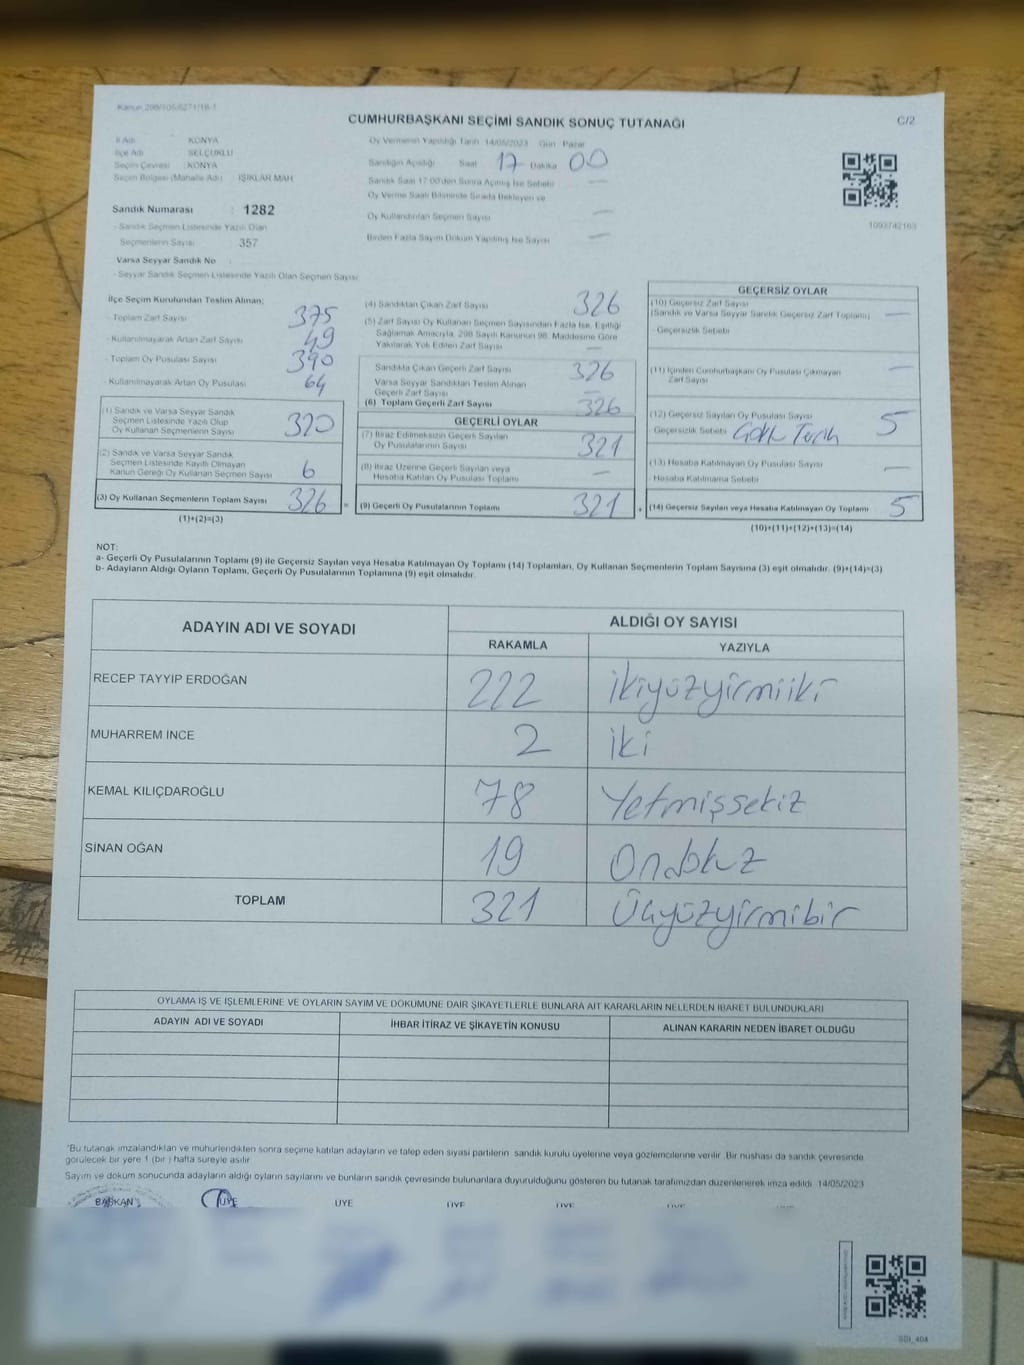 Kanun 298/105/6271/18-1
CUMHURBAŞKANI SEÇİMİ SANDIK SONUÇ TUTANAĞI
C/2
İl Adı KONYA
İlçe Adı SELÇUKLU
Seçim Çevresi KONYA
Seçim Bölgesi (Mahalle Adı) IŞIKLAR MAH
Sandık Numarası : 1282
- Sandık Seçmen Listesinde Yazılı Olan
Seçmenlerin Sayısı 357
Varsa Seyyar Sandık No
- Seyyar Sandık Seçmen Listesinde Yazılı Olan Seçmen Sayısı
Oy Vermenin Yapıldığı Tarih 14/05/2023 Gün Pazar
Sandığın Açıldığı Saat 17 Dakika 00
Sandık Saat 17:00'den Sonra Açılmış İse Sebebi —
Oy Verme Saati Bitiminde Sırada Bekleyen ve
Oy Kullandırılan Seçmen Sayısı —
Birden Fazla Sayım Döküm Yapılmış İse Sayısı —
1093742163
İlçe Seçim Kurulundan Teslim Alınan;
- Toplam Zarf Sayısı 375
- Kullanılmayarak Artan Zarf Sayısı 49
- Toplam Oy Pusulası Sayısı 390
- Kullanılmayarak Artan Oy Pusulası 64
(1) Sandık ve Varsa Seyyar Sandık
Seçmen Listesinde Yazılı Olup
Oy Kullanan Seçmenlerin Sayısı 320
(2) Sandık ve Varsa Seyyar Sandık
Seçmen Listesinde Kayıtlı Olmayan
Kanun Gereği Oy Kullanan Seçmen Sayısı 6
(3) Oy Kullanan Seçmenlerin Toplam Sayısı 326 =
(1)+(2)=(3)
(4) Sandıktan Çıkan Zarf Sayısı 326
(5) Zarf Sayısı Oy Kullanan Seçmen Sayısından Fazla İse, Eşitliği
Sağlamak Amacıyla, 298 Sayılı Kanunun 98. Maddesine Göre
Yakılarak Yok Edilen Zarf Sayısı —
Sandıkta Çıkan Geçerli Zarf Sayısı 326
Varsa Seyyar Sandıktan Teslim Alınan
Geçerli Zarf Sayısı —
(6) Toplam Geçerli Zarf Sayısı 326
GEÇERLİ OYLAR
(7) İtiraz Edilmeksizin Geçerli Sayılan
Oy Pusulalarının Sayısı 321
(8) İtiraz Üzerine Geçerli Sayılan veya
Hesaba Katılan Oy Pusulası Toplamı —
(9) Geçerli Oy Pusulalarının Toplamı 321 +
GEÇERSİZ OYLAR
(10) Geçersiz Zarf Sayısı
(Sandık ve Varsa Seyyar Sandık Geçersiz Zarf Toplamı) —
- Geçersizlik Sebebi
(11) İçinden Cumhurbaşkanı Oy Pusulası Çıkmayan
Zarf Sayısı —
(12) Geçersiz Sayılan Oy Pusulası Sayısı 5
Geçersizlik Sebebi
(13) Hesaba Katılmayan Oy Pusulası Sayısı —
- Hesaba Katılmama Sebebi
(14) Geçersiz Sayılan veya Hesaba Katılmayan Oy Toplamı 5
(10)+(11)+(12)+(13)=(14)
NOT:
a- Geçerli Oy Pusulalarının Toplamı (9) ile Geçersiz Sayılan veya Hesaba Katılmayan Oy Toplamı (14) Toplamları, Oy Kullanan Seçmenlerin Toplam Sayısına (3) eşit olmalıdır. (9)+(14)=(3)
b- Adayların Aldığı Oyların Toplamı, Geçerli Oy Pusulalarının Toplamına (9) eşit olmalıdır.
ADAYIN ADI VE SOYADI
ALDIĞI OY SAYISI
RAKAMLA YAZIYLA
RECEP TAYYIP ERDOĞAN 222 ikiyüzyirmiiki
MUHARREM İNCE 2 iki
KEMAL KILIÇDAROĞLU 78 Yetmişsekiz
SİNAN OĞAN 19 Ondokuz
TOPLAM 321 Üçyüzyirmibir
OYLAMA İŞ VE İŞLEMLERİNE VE OYLARIN SAYIM VE DÖKÜMÜNE DAİR ŞİKAYETLERLE BUNLARA AİT KARARLARIN NELERDEN İBARET BULUNDUKLARI
ADAYIN ADI VE SOYADI İHBAR İTİRAZ VE ŞİKAYETİN KONUSU ALINAN KARARIN NEDEN İBARET OLDUĞU
*Bu tutanak imzalandıktan ve mühürlendikten sonra seçime katılan adayların ve talep eden siyasi partilerin sandık kurulu üyelerine veya gözlemcilerine verilir. Bir nüshası da sandık çevresinde
görülecek bir yere 1 (bir ) hafta süreyle asılır
Sayım ve döküm sonucunda adayların aldığı oyların sayılarını ve bunların sandık çevresinde bulunanlara duyurulduğunu gösteren bu tutanak tarafımızdan düzenlenerek imza edildi. 14/05/2023
BAŞKAN ÜYE ÜYE ÜYE ÜYE ÜYE